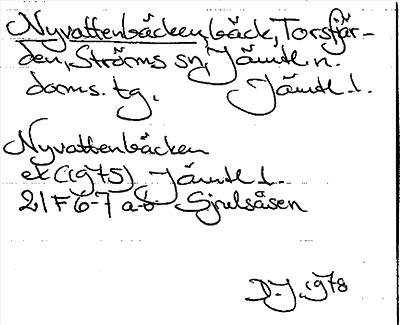 Nyvattenbäcken, bäck, Torsfjär-
den, Ströms sn, Jämtl. n.
doms. tg. Jämtl. l.
Nyvattenbäcken
ek (1975) Jämtl l.
21F 6-7 a-b Sjulsåsen
D-J, 1978